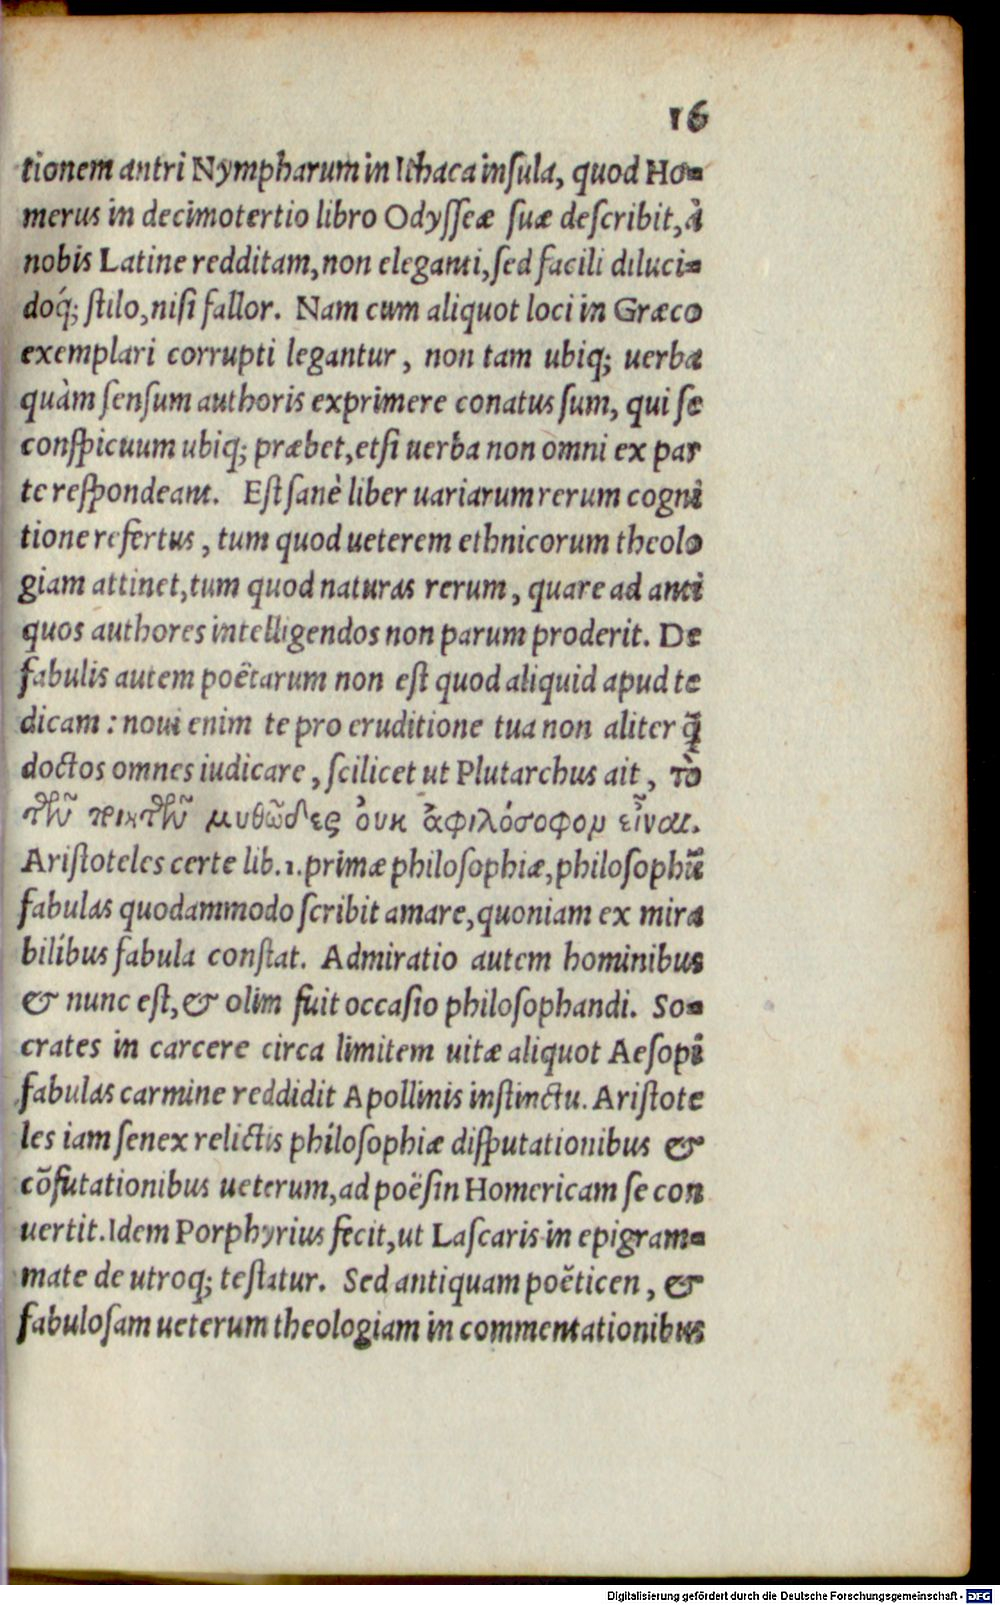 16
tionem antri Nympharum in Ithaca insula, quod Ho-
merus in decimotertio libro Odysseæ suæ describit, à
nobis Latine redditam, non eleganti, sed facili diluci-
doq́; stilo, nisi fallor. Nam cum aliquot loci in Græco
exemplari corrupti legantur, non tam ubiq; uerba
quàm sensum authoris exprimere conatus sum, qui se
conspicuum ubiq; præbet, etsi uerba non omni ex par
te respondeant. Est sanè liber uariarum rerum cogni
tione refertus, tum quod ueterem ethnicorum theolo
giam attinet, tum quod naturas rerum, quare ad anti
quos authores intelligendos non parum proderit. De
fabulis autem poëtarum non est quod aliquid apud te
dicam: noui enim te pro eruditione tua non aliter q̃
doctos omnes iudicare, scilicet ut Plutarchus ait, τὸ
τῶν μυθῶδες ὀυκ ἀφιλόσοφον εἶναι.
Aristoteles certe lib. 1. primæ philosophiæ, philosophũ
fabulas quodammodo scribit amare, quoniam ex mira
bilibus fabula constat. Admiratio autem hominibus
& nunc est, & olim fuit occasio philosophandi. So-
crates in carcere circa limitem uitæ aliquot Aesopi
fabulas carmine reddidit Apollinis instinctu. Aristote
les iam senex relictis philosophiæ disputationibus &
cõfutationibus ueterum, ad poësin Homericam se con
uertit. Idem Porphyrius fecit, ut Lascaris in epigram-
mate de utroq; testatur. Sed antiquam poëticen, &
fabulosam ueterum theologiam in commentationibus
Digitalisierung gefördert durch die Deutsche Forschungsgemeinschaft - DFG